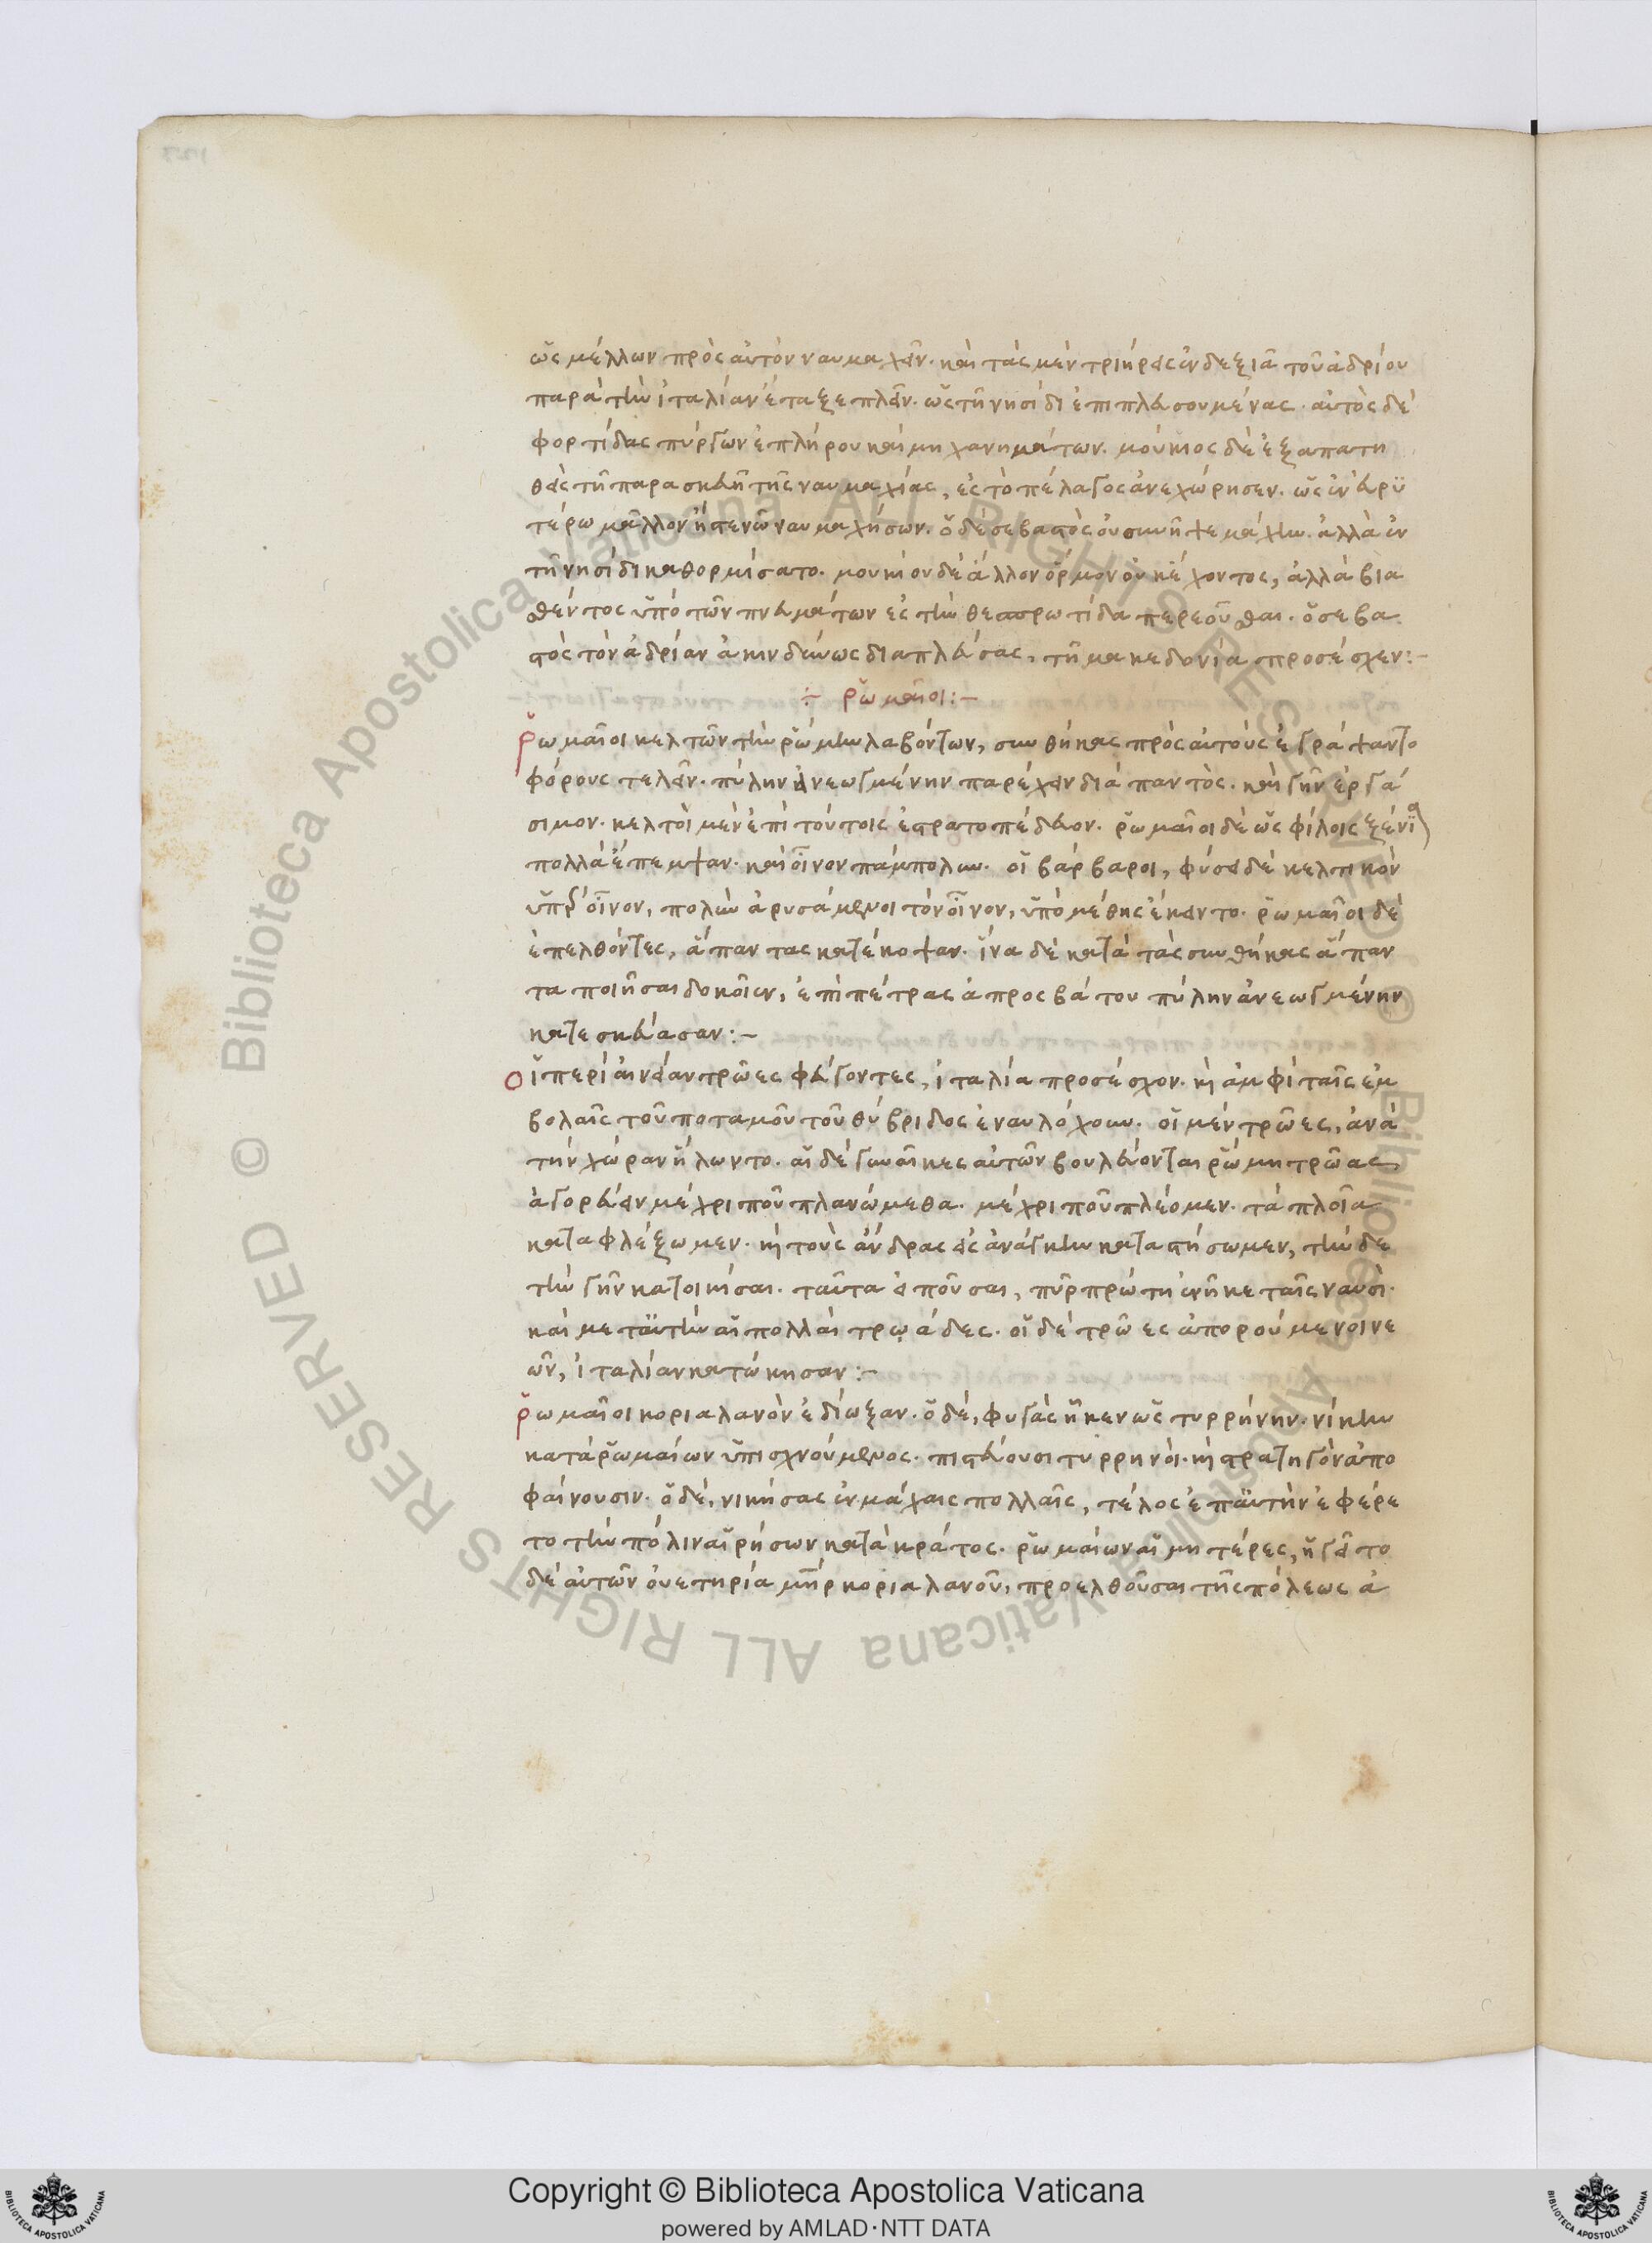 ὡς μέλλων πρὸς αὐτὸν ναυμαχεῖν. καὶ τὰς μὲν τριήρεις ἐν δεξιᾶ τοῦ ἀδρίου
παρὰ τὴν ἰταλίαν ἔταξε πλεῖν. ὡς τῆ νησίδι ἐπιπλευσουμένας. αὐτὸς δὲ
φορτίδας πύργων ἐπλήρου καὶ μηχανημάτων. μούκιος δὲ ἐξαπατη
θεὶς τῆ παρασκευῆ τῆς ναυμαχίας, ἐς τὸ πέλαγος ἀνεχώρησεν. ὡς ἐν εὐρυ
τέρω μᾶλλον ἢ στενῶ ναυμαχήσων. ὁ δὲ σεβαστὸς οὐ συνῆψε μάχην. ἀλλὰ ἐν
τῆ νησίδι καθορμίσατο. μουκίου δὲ ἄλλον ὅρμον οὐκ ἔχοντος, ἀλλὰ βια
σθέντος ὑπὸ τῶν πνευμάτων ἐς τὴν θεσπρωτίδα περεοῦσθαι. ὁ σεβα
στὸς τὸν ἀδρίαν ἀκινδύνως διαπλεύσας, τῆ μακεδονία προσέσχεν:-
÷ ῥωμαῖοι:-
Ῥωμαῖοι κελτῶν τὴν ῥώμην λαβόντων, συνθήκας πρὸς αὐτοὺς ἐγράψαντο
φόρους τελεῖν. πύλην ἀνεωγμένην παρέχειν διὰ παντὸς. καὶ γῆν ἐργά
σιμον. κελτοὶ μὲν ἐπὶ τούτοις ἐστρατοπέδευον. ῥωμαῖοι δὲ ὡς φίλοις ξένια
πολλὰ ἔπεμψαν. καὶ οἶνον πάμπολυν. οἱ βάρβαροι, φύσει δὲ κελτικὸν
ὑπὲρ οἶνον, πολὺν ἀρυσάμενοι τὸν οἶνον, ὑπὸ μέθης ἔκειντο. ῥωμαῖοι δὲ
ἐπελθόντες, ἅπαντας κατέκοψαν. ἵνα δὲ κατὰ τὰς συνθήκας ἅπαν
τα ποιῆσαι δοκοῖεν, ἐπὶ πέτρας ἀπροσβάτου πύλην ἀνεωγμένην
κατεσκεύασαν:-
Οἱ περὶ αἰνείαν τρῶες φεύγοντες, ἰταλία προσέσχον. καὶ ἀμφὶ ταῖς ἐμ
βολαῖς τοῦ ποταμοῦ τοῦ θύβριδος ἐναυλόχουν. οἱ μὲν τρῶες, ἀνὰ
τὴν χώραν ἥλωντο. αἱ δὲ γυναῖκες αὐτῶν βουλεύονται ῥώμη τρῶας
ἀγορεύειν μέχρι ποῦ πλανώμεθα. μέχρι ποῦ πλέομεν. τὰ πλοῖα
καταφλέξωμεν. καὶ τοὺς ἄνδρας εἰς ἀνάγκην καταστήσωμεν, τήνδε
τὴν γῆν κατοικίσαι. ταῦτα εἰποῦσαι, πῦρ πρώτη ἐνῆκε ταῖς ναυσὶ.
καὶ μετ' αὐτὴν αἱ πολλαὶ τρῳάδες. οἱ δὲ τρῶες ἀπορούμενοι νε
ῶν, ἰταλίαν κατώκησαν:-
Ῥωμαῖοι κοριαλανὸν ἐδίωξαν. ὁ δὲ, φυγὰς ἧκεν ὡς τυρρήνην. νίκην
κατὰ ῥωμαίων ὑπισχνούμενος. πιστεύουσι τυρρηνοὶ. καὶ στρατηγὸν ἀπο
φαίνουσιν. ὁ δὲ, νικήσας ἐν μάχαις πολλαῖς, τέλος ἐπ' αὐτὴν ἐφέρε
το τὴν πόλιν αἱρήσων κατὰ κράτος. ῥωμαίων αἱ μητέρες, ἡγεῖτο
δὲ αὐτῶν οὐετηρία μήτηρ κοριαλανοῦ, προελθοῦσαι τῆς πόλεως ἀ
Copyright © Biblioteca Apostolica Vaticana
powered by AMLAD·NTT DATA
© Biblioteca Apostolica Vaticana ALL RIGHTS RESERVED
© Biblioteca Apostolica Vaticana ALL RIGHTS RESERVED
BIBLIOTECA APOSTOLICA VATICANA
BIBLIOTECA APOSTOLICA VATICANA